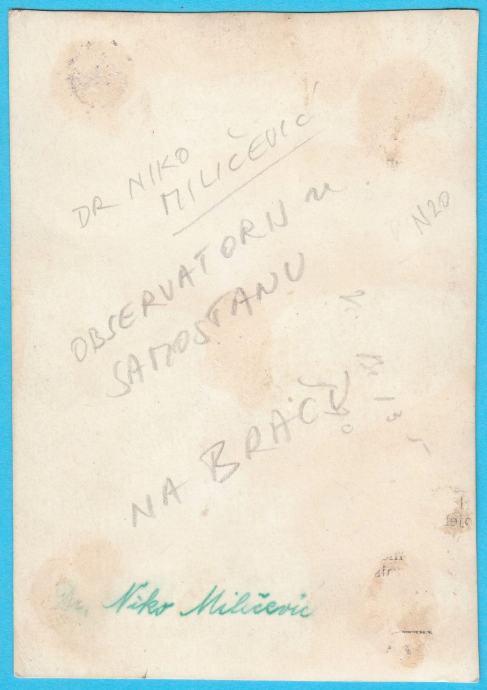 DR NIKO
MILIČEVIĆ
N20
OBSERVATORIJ u
SAMOSTANU
NA BRAČU
Dr. Niko Miličević